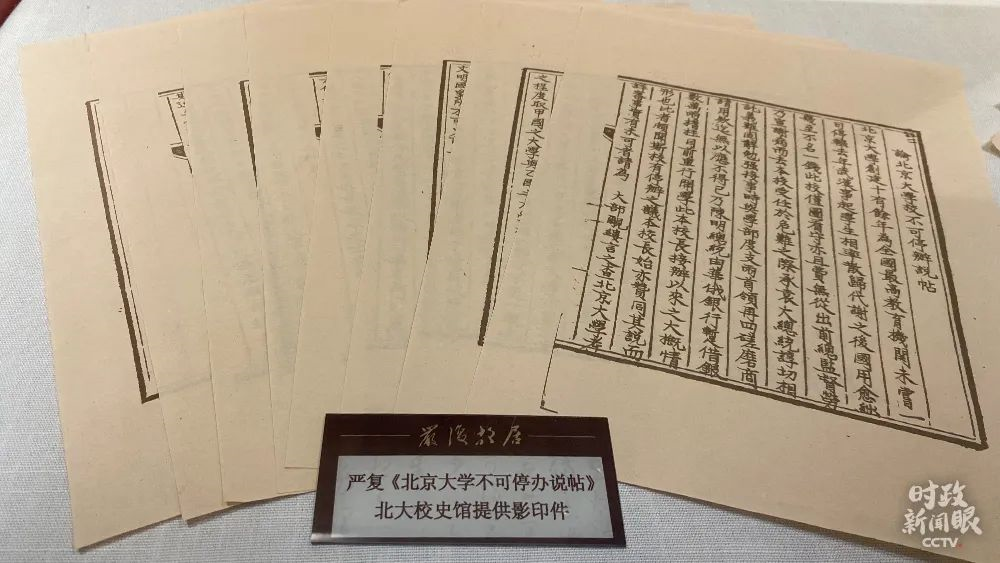 論北京大學校不可停辦說帖
北京大學創建十有餘年為全國最高教育機關未嘗
可停輟去年武漢事起學生相率散歸代謝之後國用愈絀
幾至不名一錢此校僅圖看守亦且費無從出前總監督勞
而去本校受任於危難之際承袁大總統諄切相
託義難固辭勉強接事時與學部度支兩首領再四磋磨商
請用款迄無以應不得已乃陳明總統由華俄銀行暫借銀
數萬兩 目前重行開學此本校長接辦以來之大概情
形也比者頗聞斯校有停辦之議本校長始亦贊同其說而
詳審事實有未可者請為 大部覼縷言之查北京大學考
之程度取甲國之大學與乙國之大
文明國
嚴復故居
严复《北京大学不可停办说帖》
北大校史馆提供影印件
时政
新闻眼
CCTV